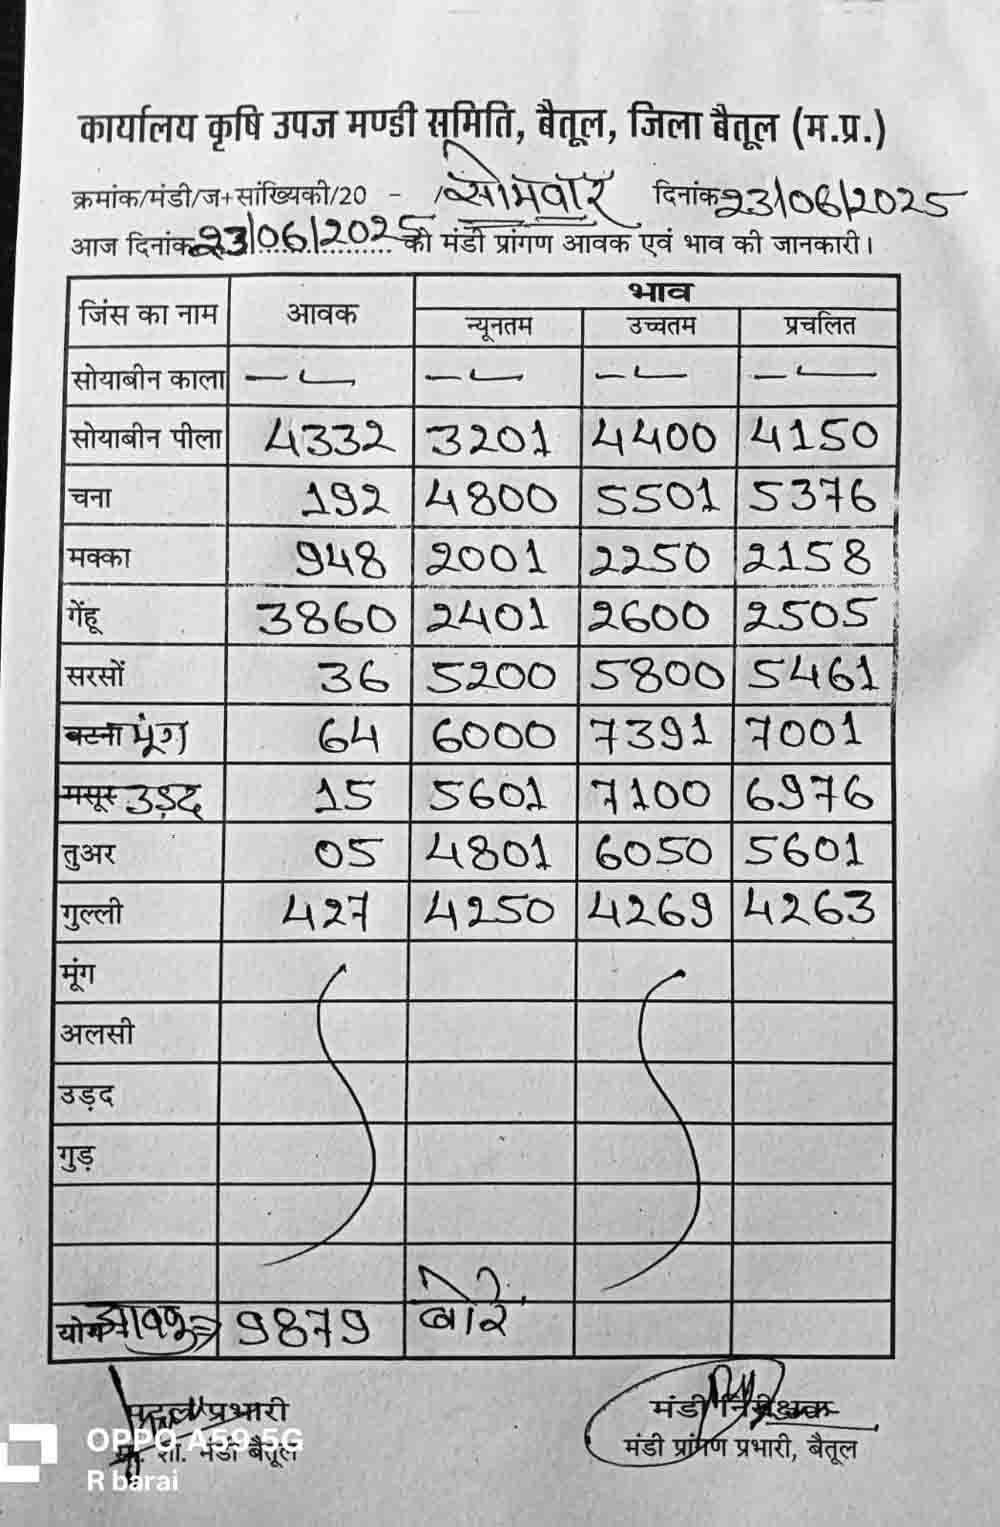 कार्यालय कृषि उपज मण्डी समिति, बैतूल, जिला बैतूल (म.प्र.)
क्रमांक/मंडी/ज+सांख्यिकी/20 - / सोमवार दिनांक 23/06/2025
आज दिनांक 23/06/2025 को मंडी प्रांगण आवक एवं भाव की जानकारी।
जिंस का नाम आवक भाव
न्यूनतम उच्चतम प्रचलित
सोयाबीन काला — — — —
सोयाबीन पीला 4332 3201 4400 4150
चना 192 4800 5501 5376
मक्का 948 2001 2250 2158
गेंहू 3860 2401 2600 2505
सरसों 36 5200 5800 5461
बटना मूंग 64 6000 7391 7001
मसूर उड़द 15 5601 7100 6976
तुअर 05 4801 6050 5601
गुल्ली 427 4250 4269 4263
मूंग
अलसी
उड़द
गुड़
योग आवक 9879 बोरे
प्रभारी मंडी निरीक्षक
शा. मंडी बैतूल मंडी प्रांगण प्रभारी, बैतूल
OPPO A59 5G
R barai